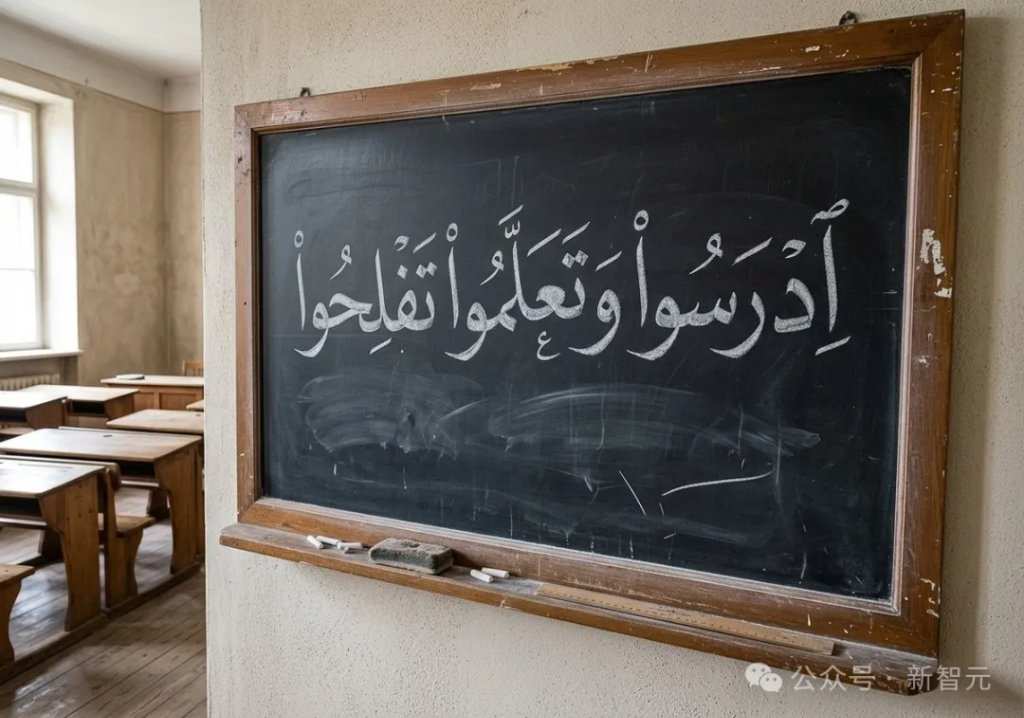 ٱِدْرَسُواْ وَتَعَلَّمُواْ تَفْلِحُواْ
ع
公众号 · 新智元